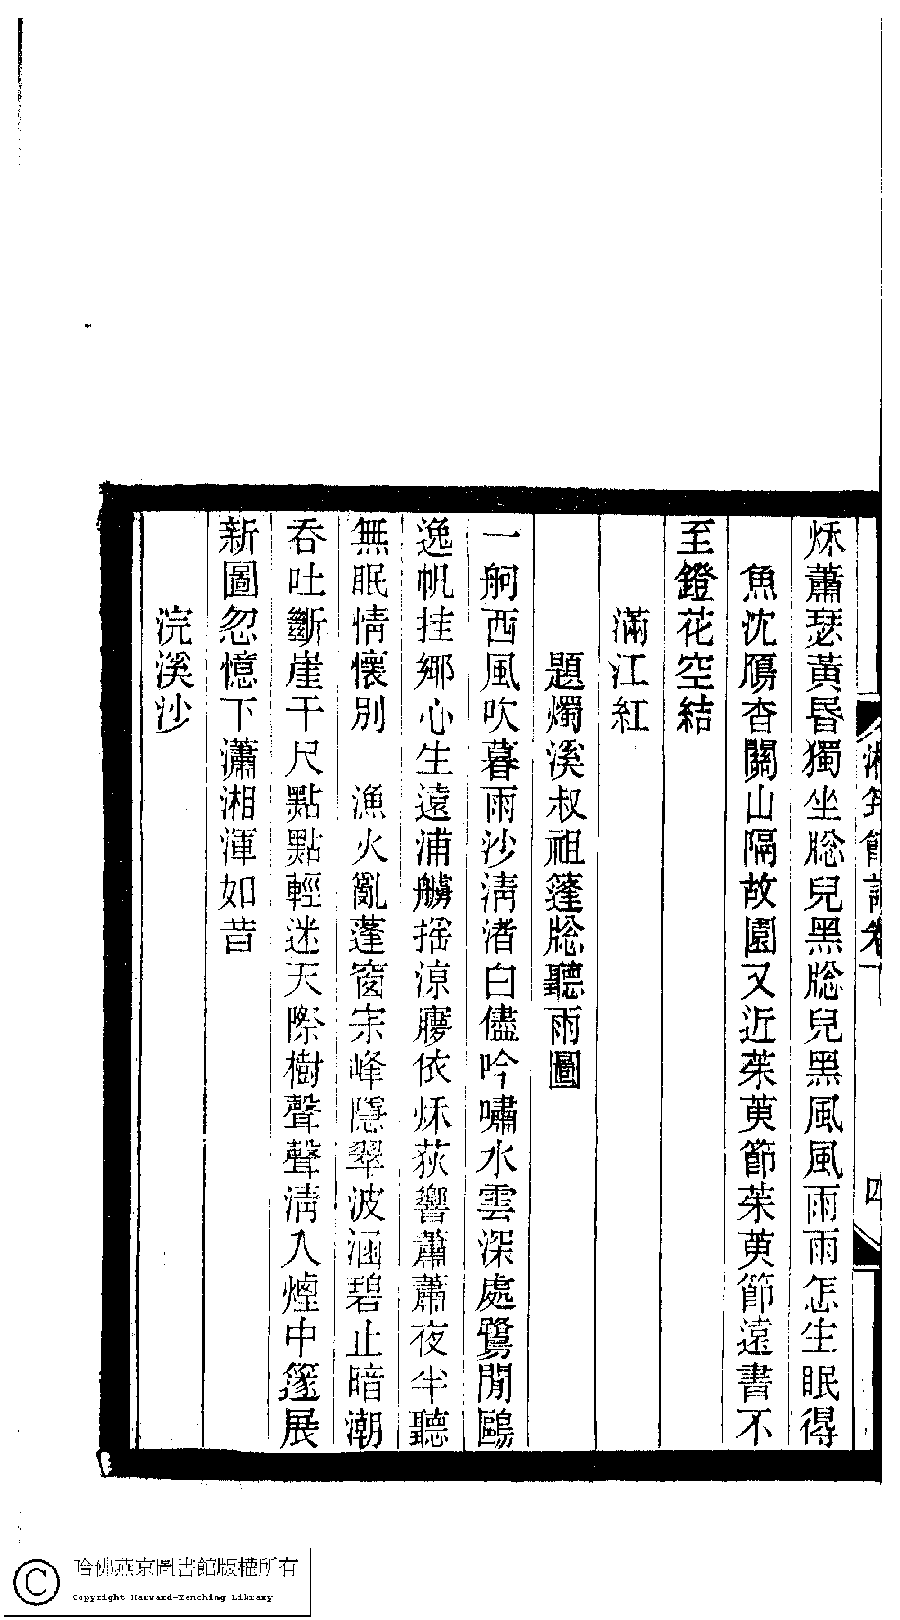 秌蕭瑟黃昬獨坐牕兒黑牕兒黑風風雨雨怎生眠得
魚沈鴈杳關山隔故園又近茱萸節茱萸節遠書不
至鐙花空結
滿江紅
題燭溪叔祖篷牕聽雨圖
一舸西風吹暮雨沙淸渚白儘吟嘯水雲深處鷺閒鷗
逸帆挂鄉心生遠浦艣搖涼夢依秌荻響蕭蕭夜半聽
無眠情懷別　漁火亂蓬窗宗峰隱翠波涵碧止暗潮
吞吐斷崖千尺點點輕迷天際樹聲聲淸入煙中篴展
新圖忽憶下瀟湘渾如昔
浣溪沙
四
哈佛燕京圖書館版權所有
Copyright Harvard-Yenching Library